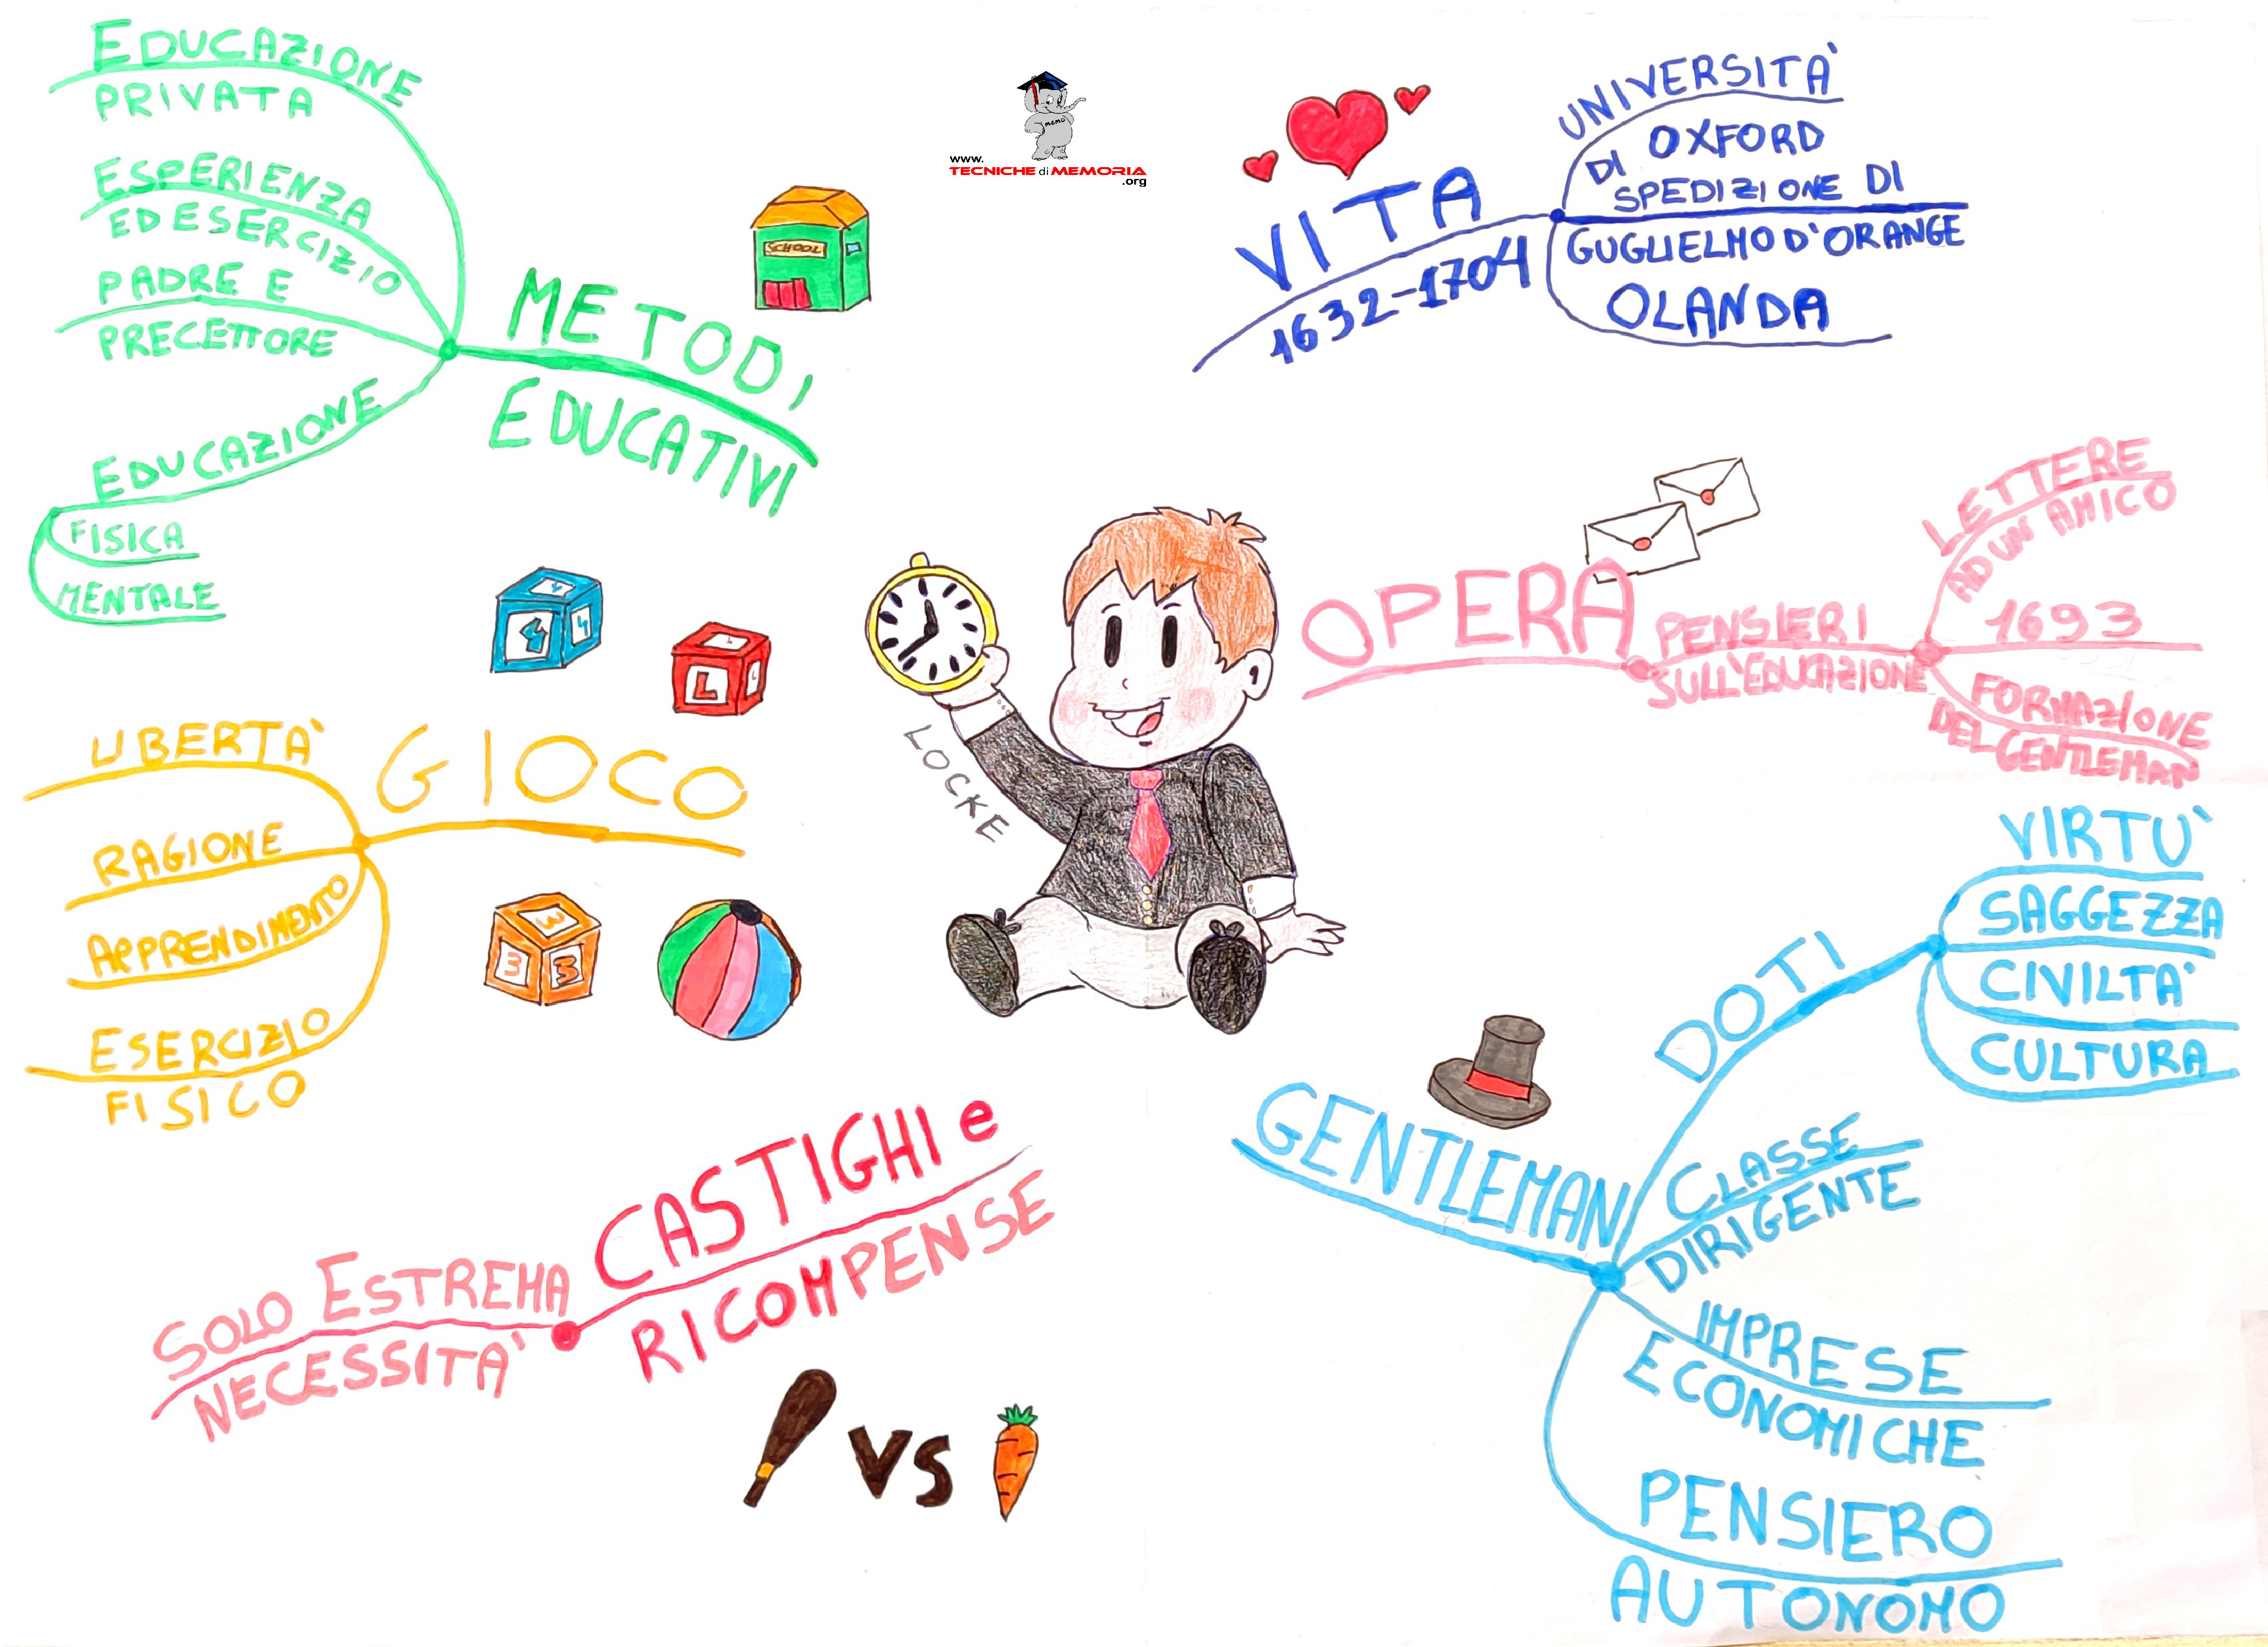 EDUCAZIONE
PRIVATA
ESPERIENZA
ED ESERCIZIO
PADRE E
PRECETTORE
EDUCAZIONE
FISICA
MENTALE
METODI
EDUCATIVI
SCHOOL
MEMO
www.
TECNICHE di MEMORIA
.org
VITA
1632-1704
UNIVERSITA'
DI OXFORD
SPEDIZIONE DI
GUGLIELMO D'ORANGE
OLANDA
OPERA
PENSIERI
SULL'EDUCAZIONE
LETTERE
AD UN AMICO
1693
FORMAZIONE
DEL GENTLEMAN
4
4
4
L
L
L
LOCKE
GIOCO
LIBERTA'
RAGIONE
APPRENDIMENTO
ESERCIZIO
FISICO
3
3
3
GENTLEMAN
DOTI
VIRTU'
SAGGEZZA
CIVILTA'
CULTURA
CLASSE
DIRIGENTE
IMPRESE
ECONOMICHE
PENSIERO
AUTONOMO
CASTIGHI e
RICOMPENSE
SOLO ESTREMA
NECESSITA'
VS